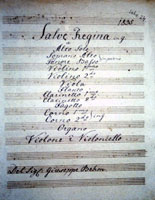 1835
Salve Regina in g
Alto Solo
Soprano Alto
Tenore Basso
Violino Primo
Violino 2do
Viola
Flauto
Clarinetto 1mo
Clarinetto 2do
Fagotto
Corno 1mo
Corno 2do
Organo
Violone e Violoncello
Del Sigr Giuseppe